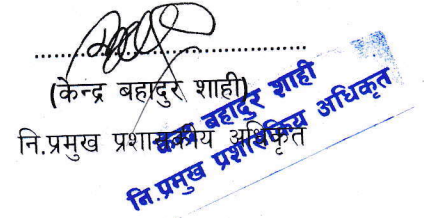 (केन्द्र बहादुर शाही)
नि.प्रमुख प्रशासकीय अधिकृत
बहादुर शाही
नि.प्रमुख प्रशासकिय अधिकृत